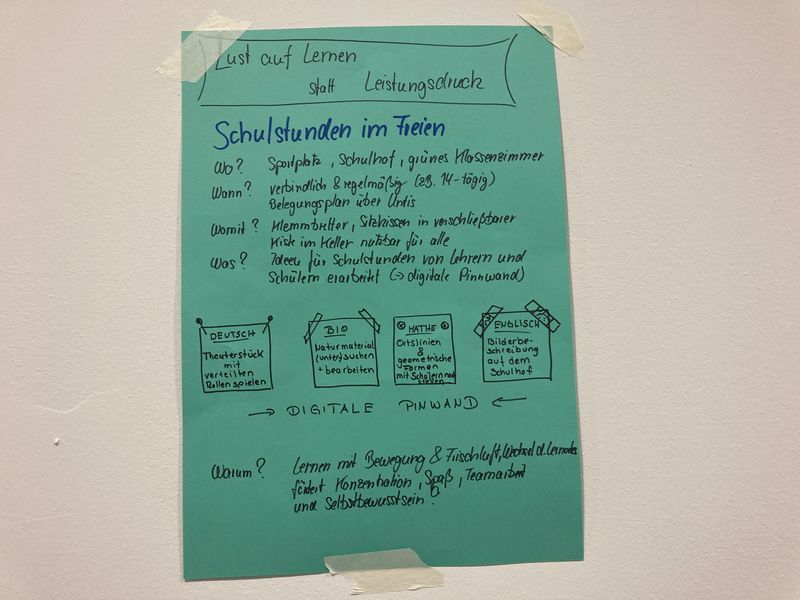 Lust auf Lernen
statt Leistungsdruck
Schulstunden im Freien
Wo? Sportplatz, Schulhof, grünes Klassenzimmer
Wann? verbindlich & regelmäßig (zB. 14-tägig)
Belegungsplan über Untis
Womit? Klemmbretter, Sitzkissen in verschließbarer
Kiste im Keller nutzbar für alle
Was? Ideen für Schulstunden von Lehrern und
Schülern erarbeitet (→ digitale Pinnwand)
DEUTSCH
Theaterstück
mit
verteilten
Rollen spielen
BIO
Naturmaterial
(unter)suchen
+ bearbeiten
MATHE
Ortslinien
&
geometrische
Formen
mit Schülern nach
stellen
ENGLISCH
Bilderbe-
schreibung
auf dem
Schulhof
→ DIGITALE PINWAND ←
Warum? Lernen mit Bewegung & Frischluft, Wechsel d. Lernortes
fördert Konzentration, Spaß, Teamarbeit
und Selbstbewusstsein!